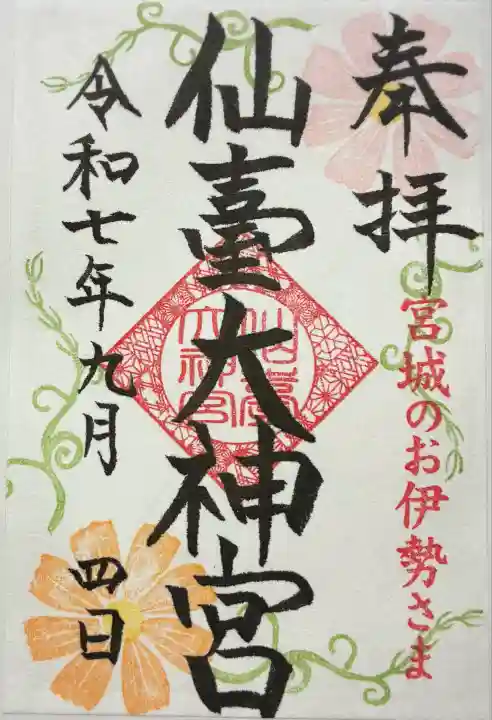 奉拝
宮城のお伊勢さま
仙臺大神宮
仙臺
大神宮
令和七年九月
四日